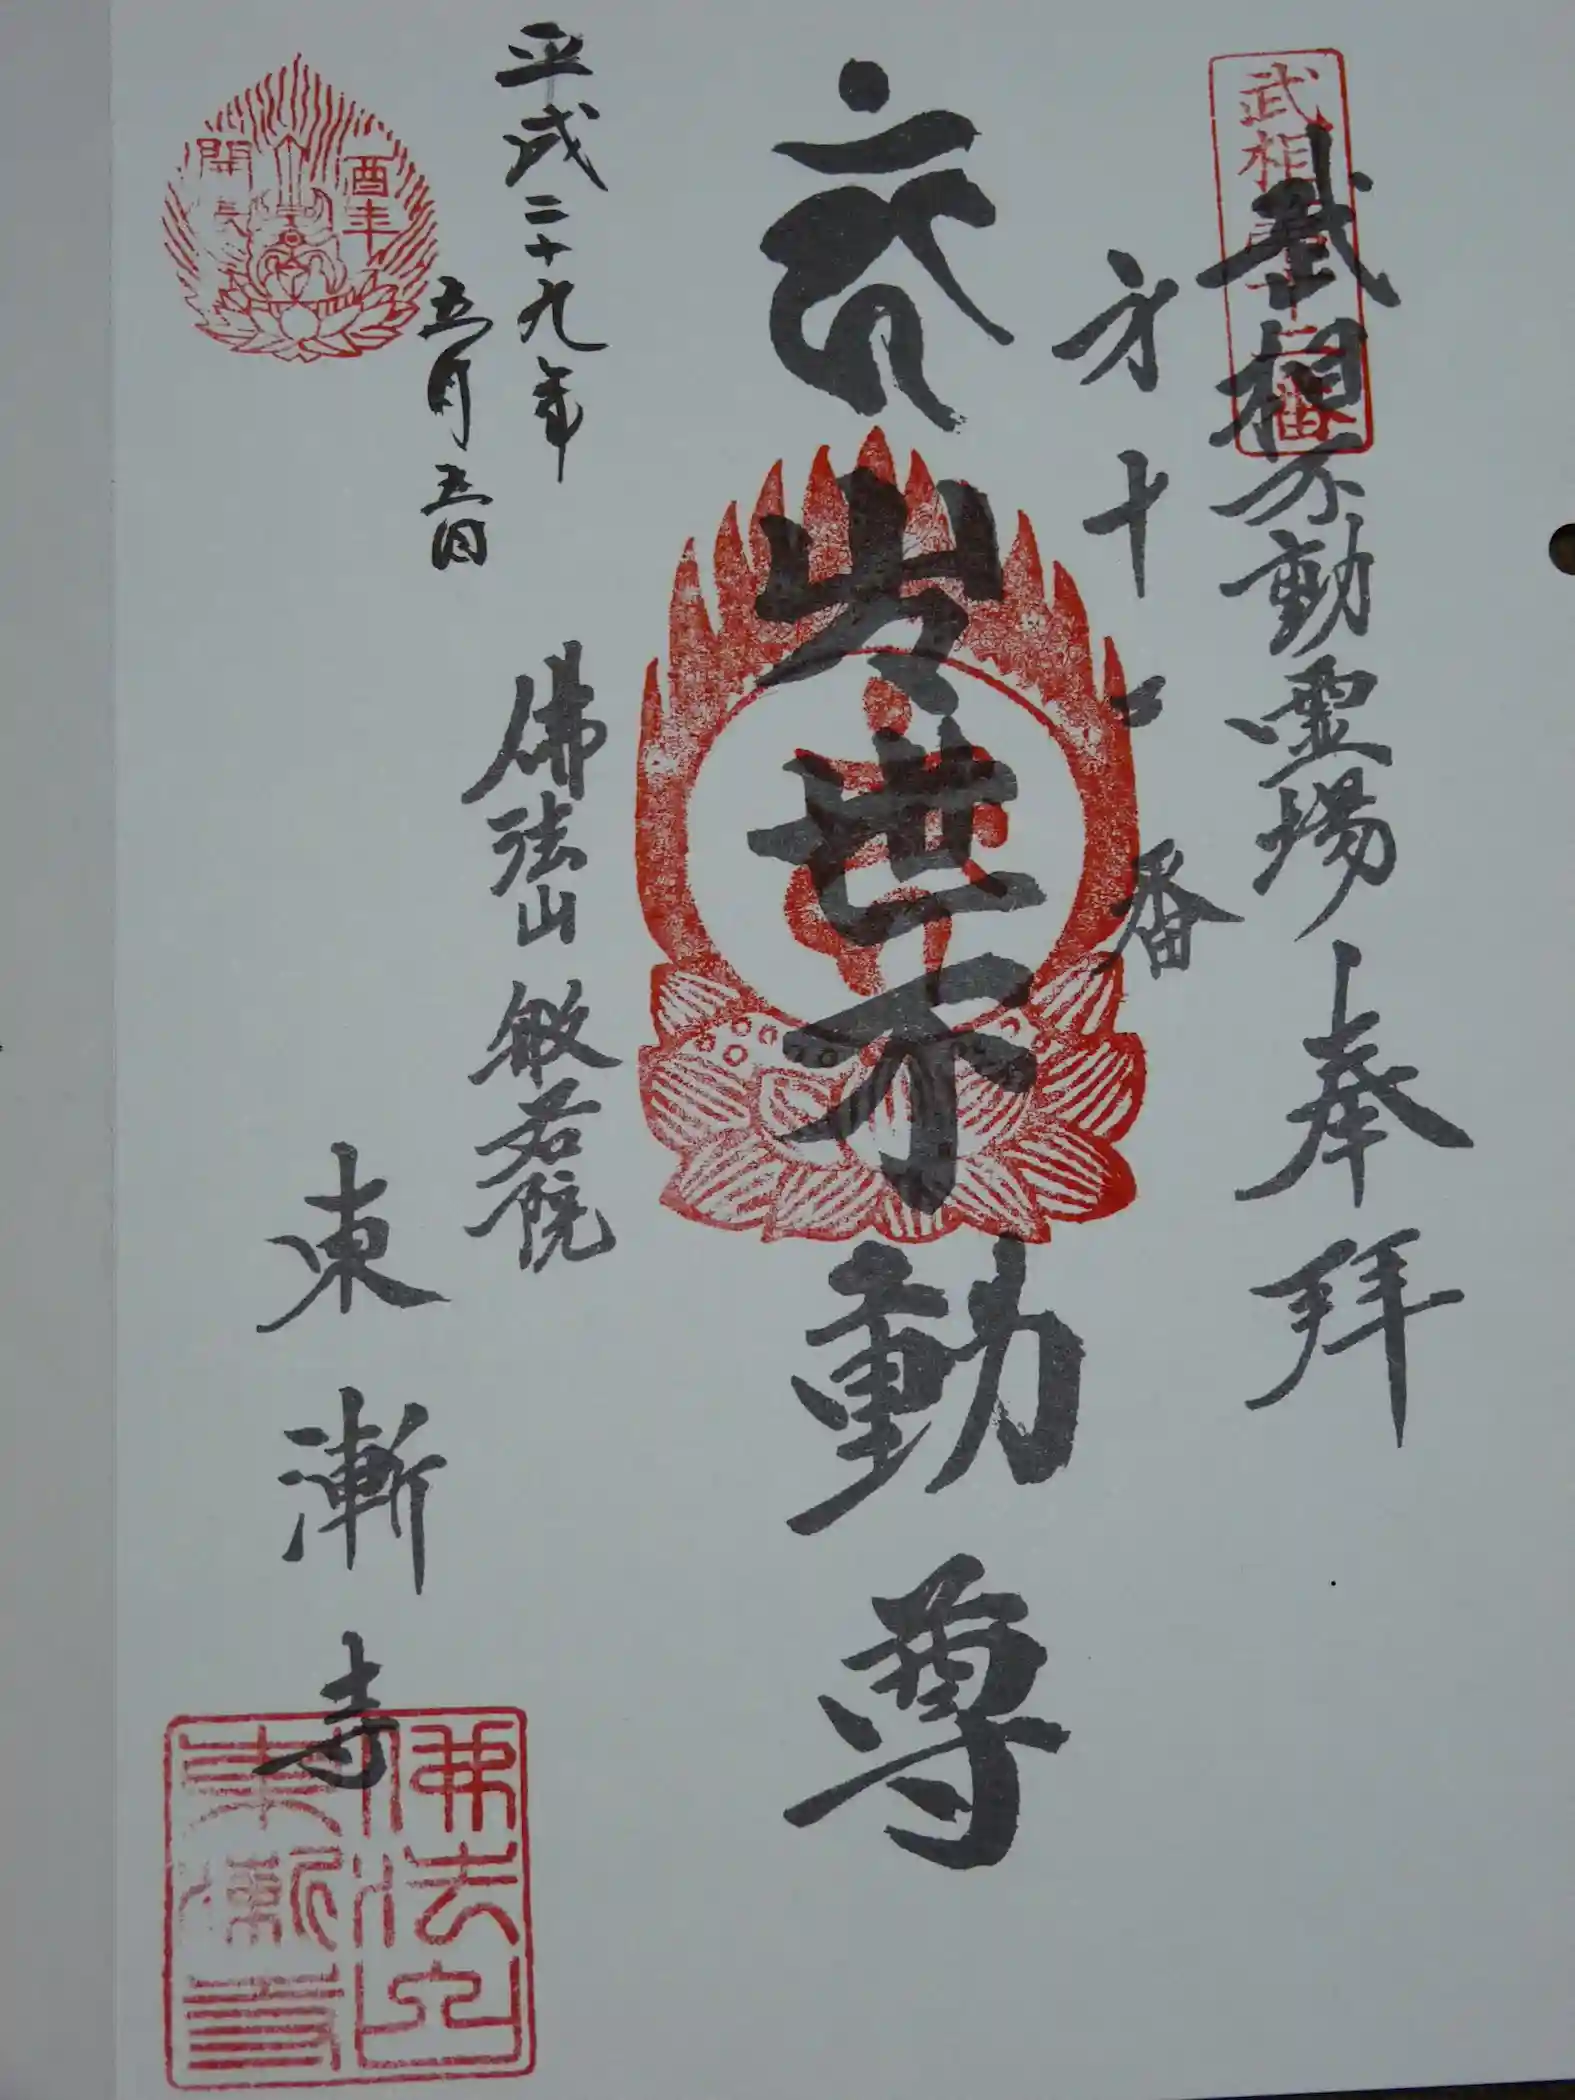 武相第十二番
武相不動霊場 奉拝
才十二番
出世不動尊
平成二十九年
五月五日
佛法山 般若院
東漸寺
酉年
開帳
佛法山
東漸寺